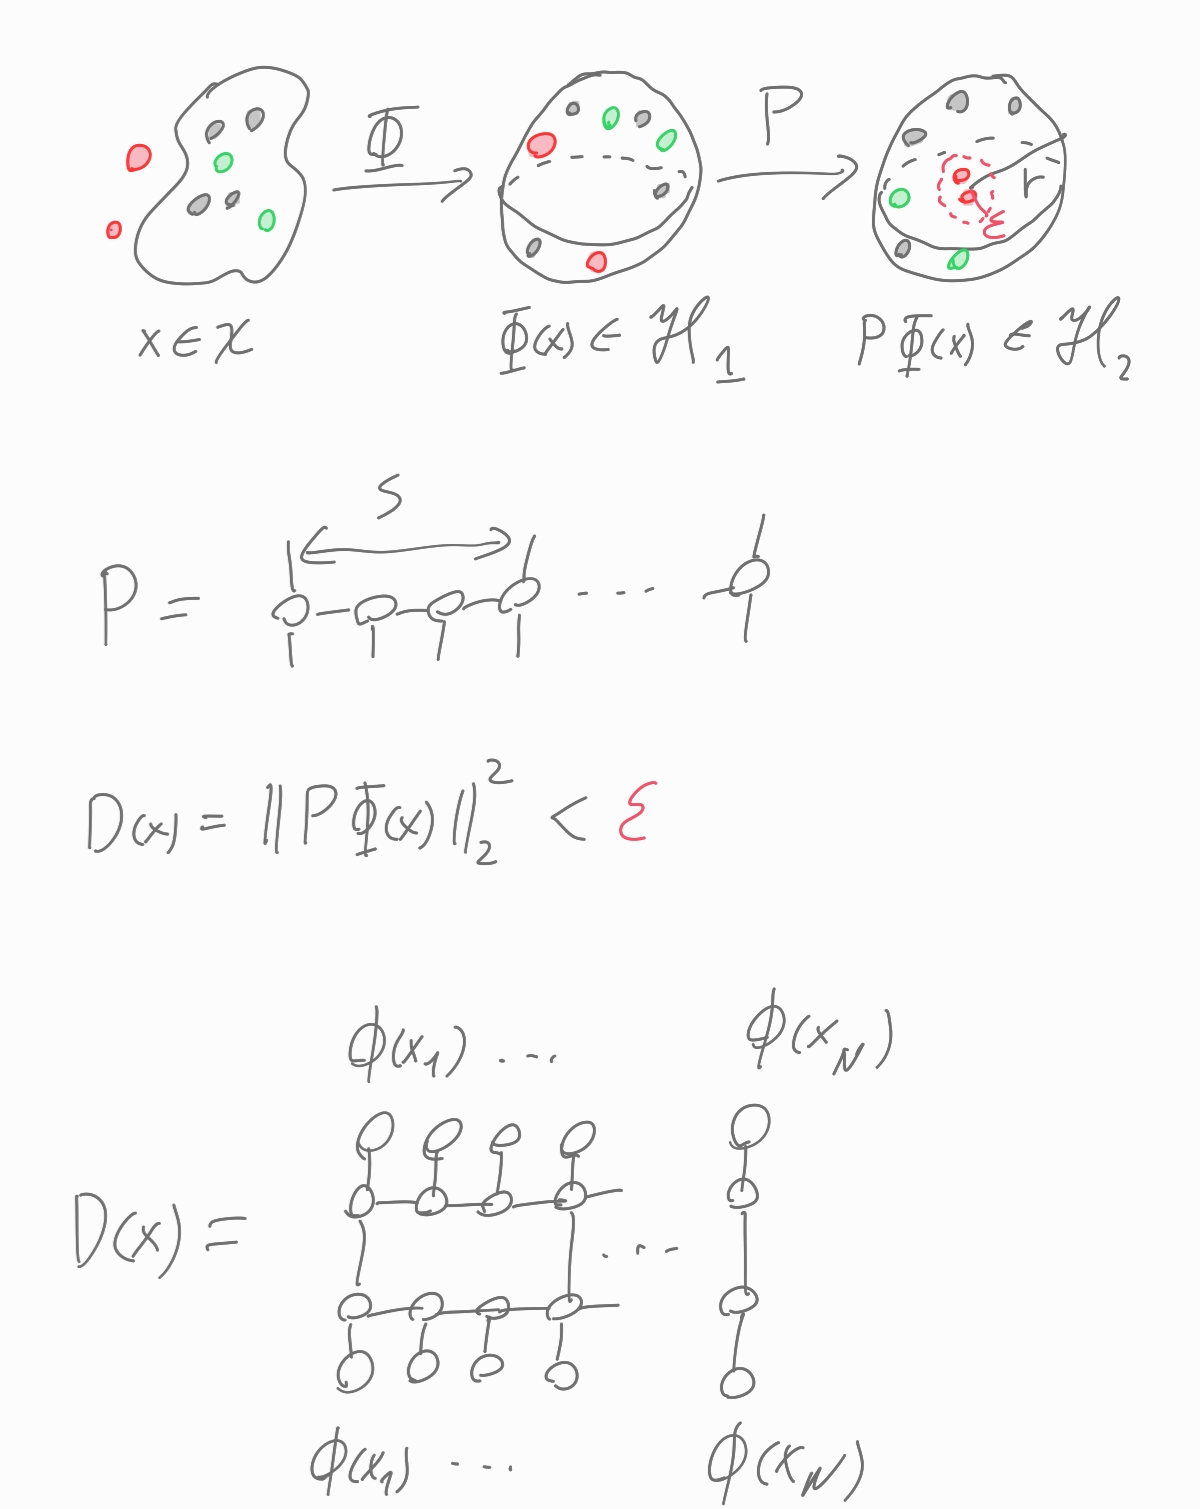 Φ P
r
ε
x ∈ 𝒳 Φ(x) ∈ ℋ₁ PΦ(x) ∈ ℋ₂
S
P = ...
D(x) = ‖PΦ(x)‖₂² < ε
ϕ(x₁) ... ϕ(x_N)
D(x) = ...
ϕ(x₁) ... ϕ(x_N)